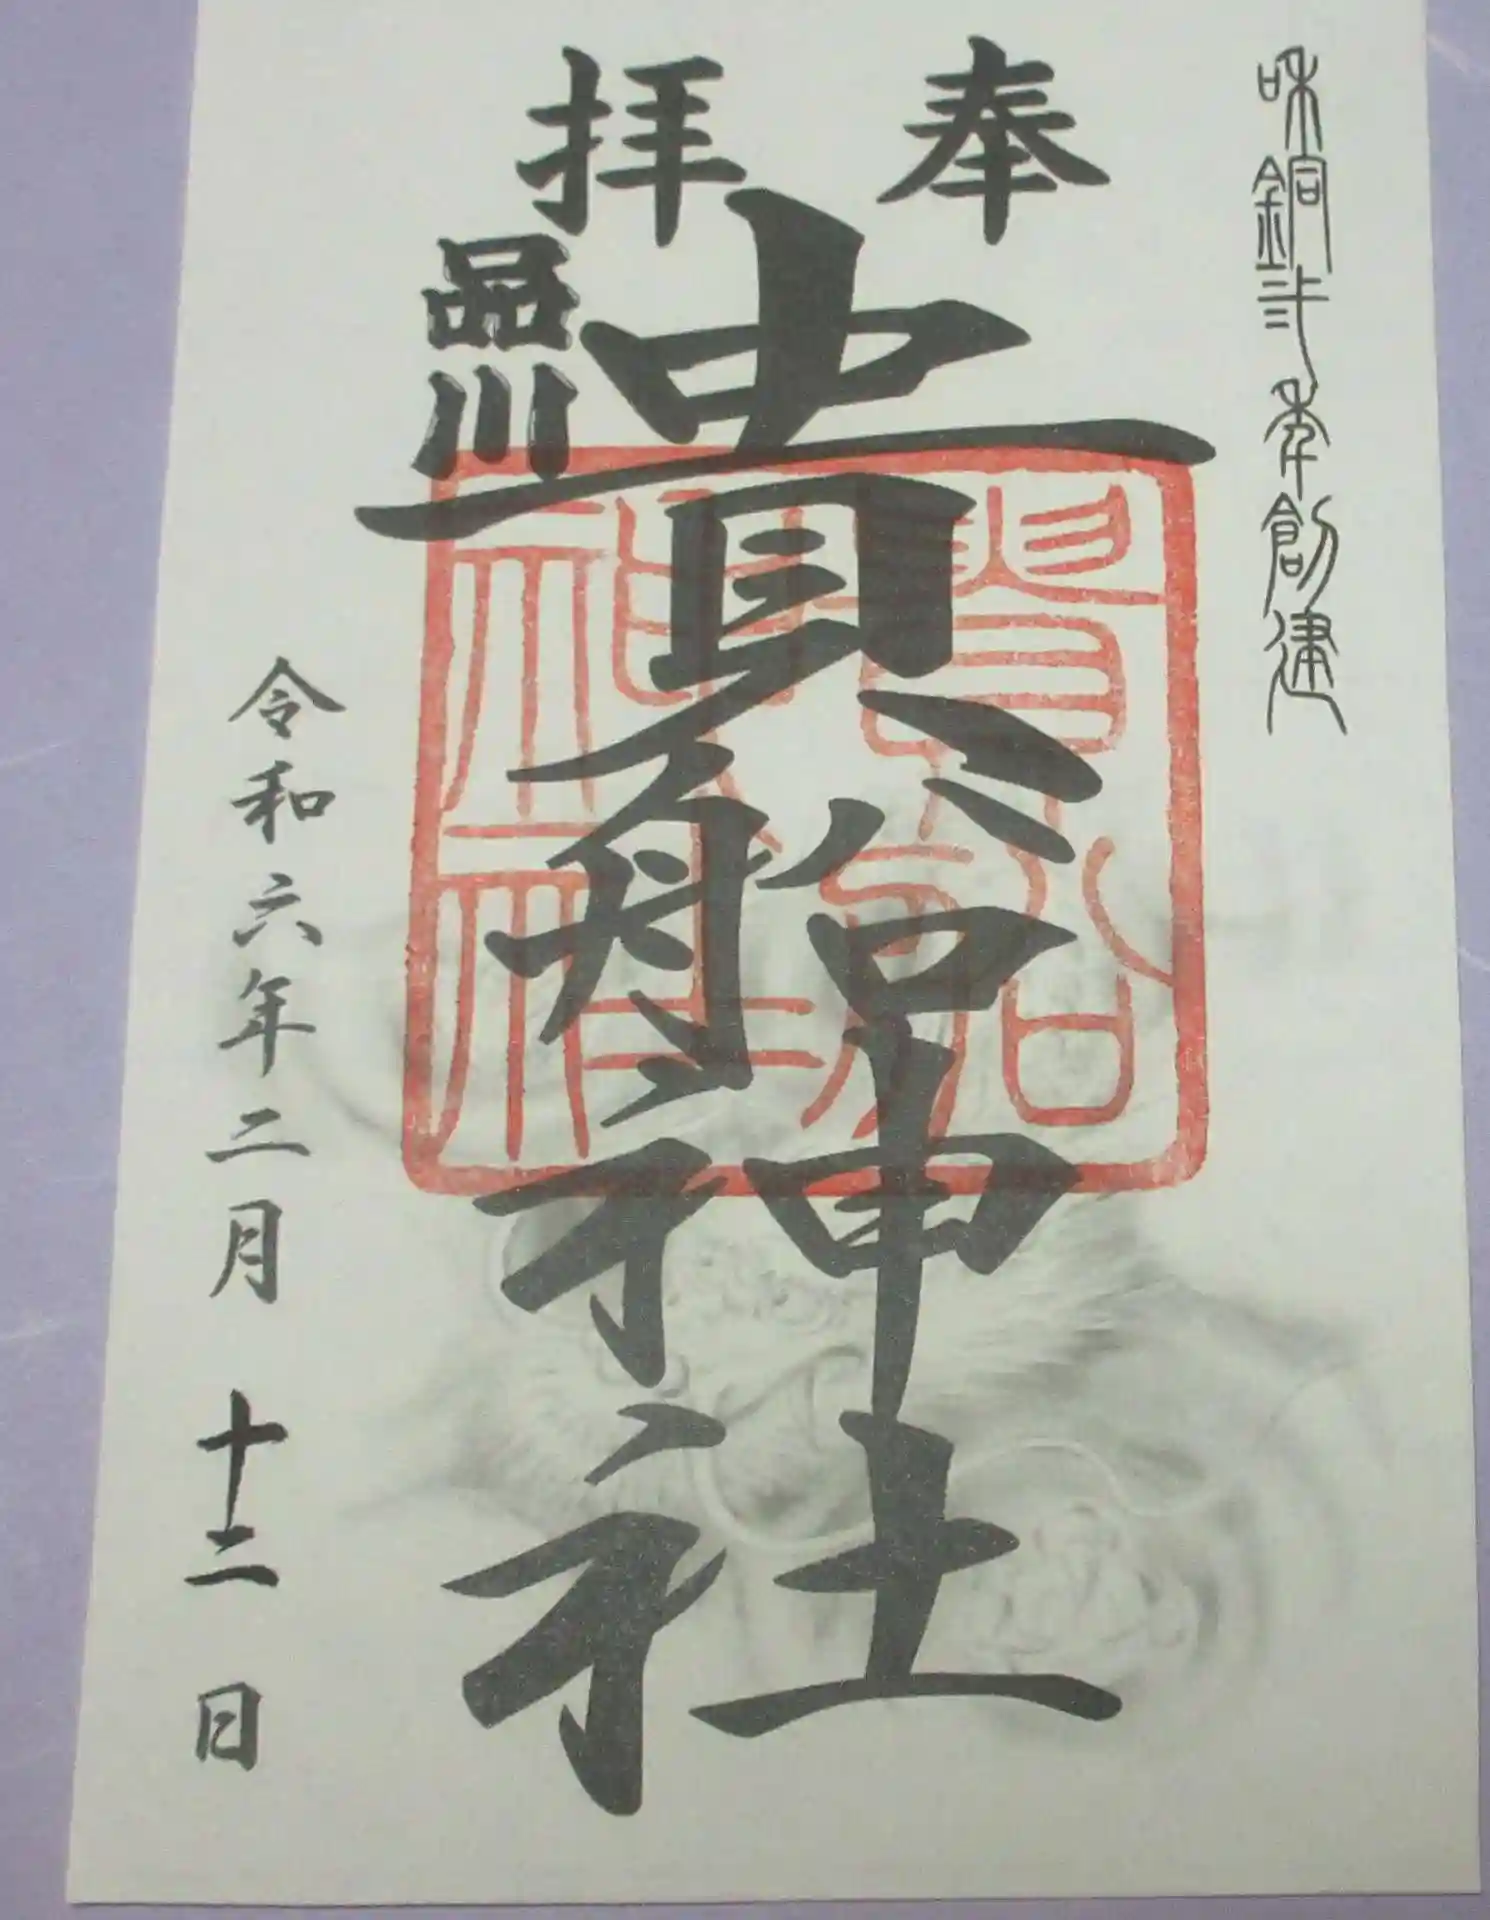 和銅弐年創建
奉拝
品川
貴船神社
貴船神社
令和六年二月十二日